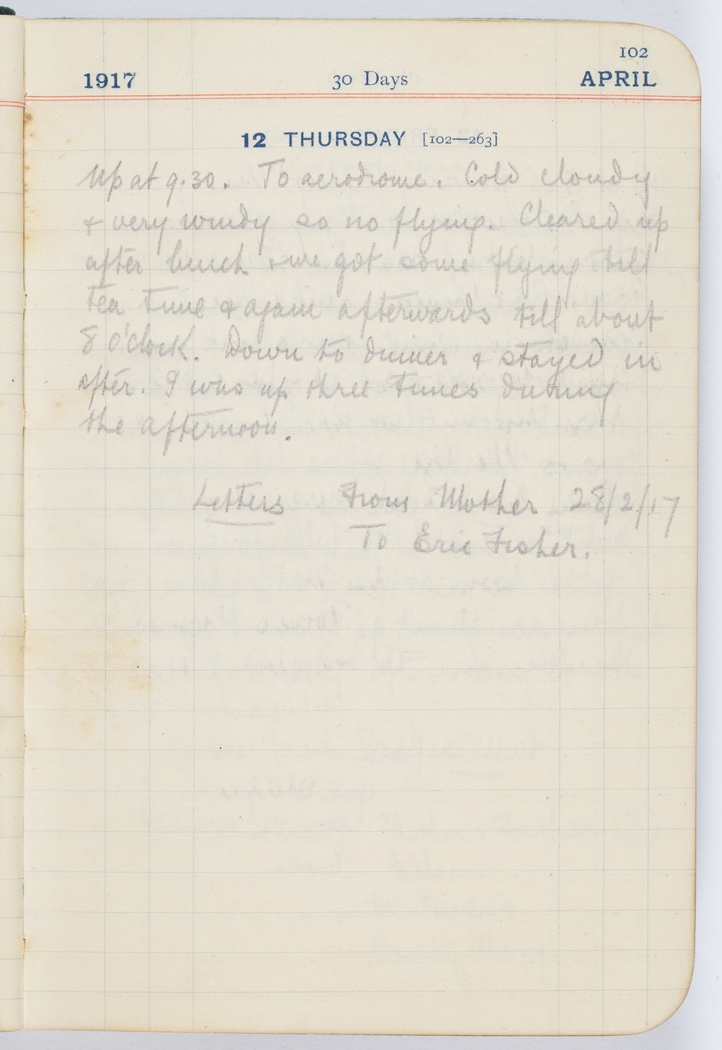 102
1917 30 Days APRIL
12 THURSDAY [102—263]
Up at 9.30. To aerodrome. Cold cloudy
& very windy so no flying. Cleared up
after lunch & we got some flying till
tea time & again afterwards till about
8 o'clock. Down to dinner & stayed in
after. I was up three times during
the afternoon.
Letters From Mother 28/2/17
To Eric Fisher.